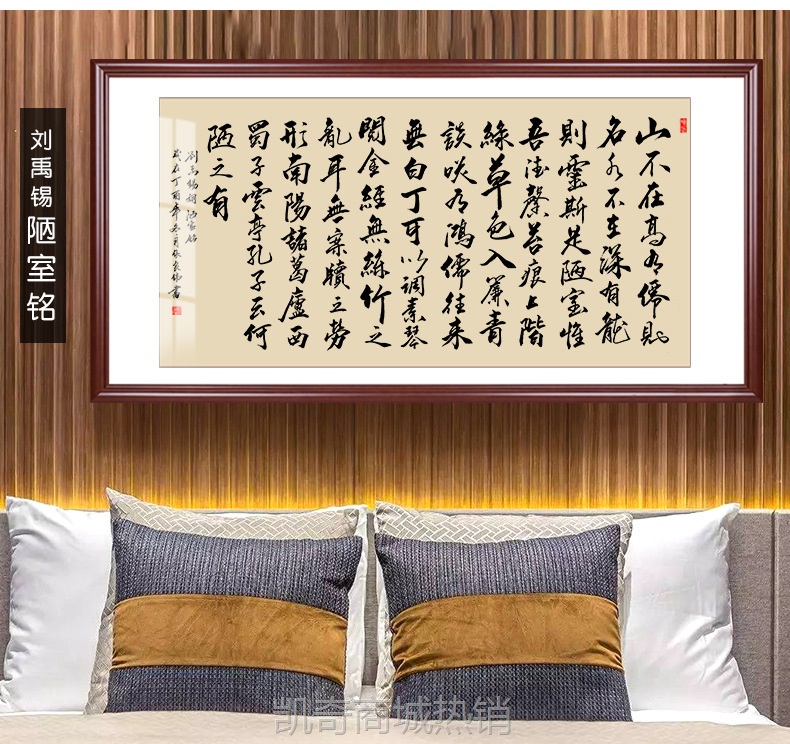 山不在高有僊則
名水不在深有龍
則靈斯是陋室惟
吾德馨苔痕上階
綠草色入簾青
談咲有鴻儒往来
無白丁可以调素琴
閱金經無絲竹之
亂耳無案牘之勞
形南陽諸葛廬西
蜀子雲亭孔子云何
陋之有
劉禹锡詞陋室銘
歲在丁酉年冬月
刘禹锡陋室铭
凯奇商城热销